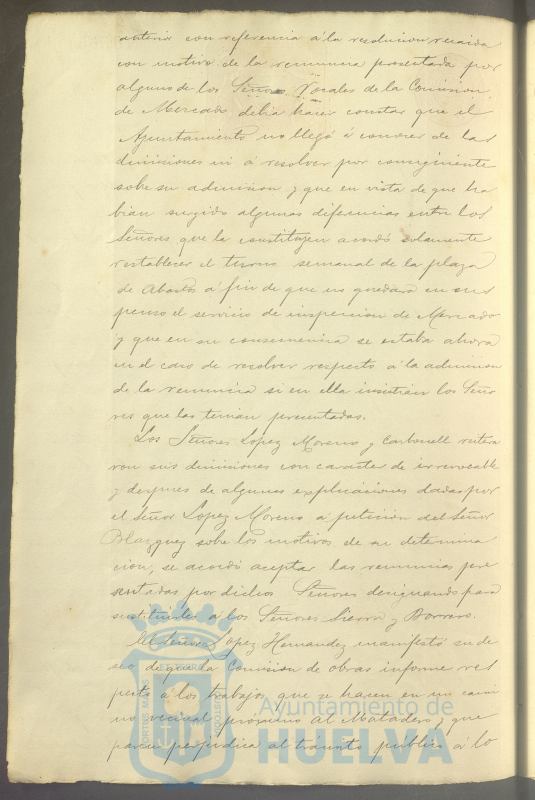 anterior con referencia á la resolucion recaida
con motivo de la renuncia presentada por
alguno de los Señores Vocales de la Comision
de Mercado debia hacer constar que el
Ayuntamiento no llegó á conocer de las
dimisiones ni á resolver por consiguiente
sobre su admision y que en vista de que ha
bian surgido algunas diferencias entre los
Señores que la constituyen acordó solamente
restablecer el turno semanal de la plaza
de Abastos á fin de que no quedara en sus
penso el servicio de inspeccion de Mercado
y que en su consecuencia se estaba ahora
en el caso de resolver respecto á la admision
de la renuncia si en ella insistian los Seño
res que las tenian presentadas.
Los Señores Lopez Moreno y Carbonell reitera
ron sus dimisiones con caracter de irrevocable
y despues de algunas explicaciones dadas por
el Señor Lopez Moreno a peticion del Señor
Blazquez sobre los motivos de su determina
cion, se acordó aceptar las renuncias pre
sentadas por dichos Señores designando para
sustituirles a los Señores Sierra y Borrero.
El Señor Lopez Hernandez manifestó su de
seo de que la Comision de obras informe res
pecto á los trabajos que se hacen en un cami
no vecinal proximo al Matadero y que
parece perjudica al tránsito publico á lo
Ayuntamiento de
HUELVA